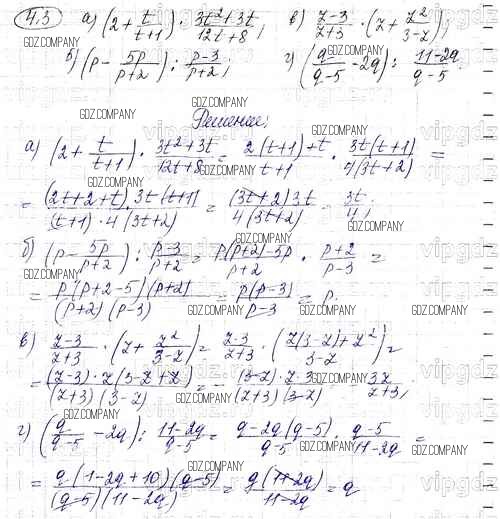 4.3 а) (2 + t/(t+1)) · (3t²+3t)/(12t+8); в) (z-3)/(z+3) · (z + z²/(3-z));
GDZ.COMPANY GDZ.COMPANY GDZ.COMPANY
б) (p - 5p/(p+2)) : (p-3)/(p+2); г) (q/(q-5) - 2q) : (11-2q)/(q-5).
GDZ.COMPANY GDZ.COMPANY
Решение:
а) (2 + t/(t+1)) · (3t²+3t)/(12t+8) = (2(t+1)+t)/(t+1) · (3t(t+1))/(4(3t+2)) =
= ((2t+2+t) · 3t(t+1))/((t+1) · 4(3t+2)) = ((3t+2)3t)/(4(3t+2)) = 3t/4;
б) (p - 5p/(p+2)) : (p-3)/(p+2) = (p(p+2)-5p)/(p+2) · (p+2)/(p-3) =
= (p(p+2-5)(p+2))/((p+2)(p-3)) = (p(p-3))/(p-3) = p.
в) (z-3)/(z+3) · (z + z²/(3-z)) = (z-3)/(z+3) · ((z(3-z)+z²)/(3-z)) =
= ((z-3) · z(3-z+z))/((z+3)(3-z)) = - ((3-z) · z · 3)/((z+3)(3-z)) = - 3z/(z+3);
г) (q/(q-5) - 2q) : (11-2q)/(q-5) = (q-2q(q-5))/(q-5) · (q-5)/(11-2q) =
= (q(1-2q+10)(q-5))/((q-5)(11-2q)) = (q(11-2q))/(11-2q) = q